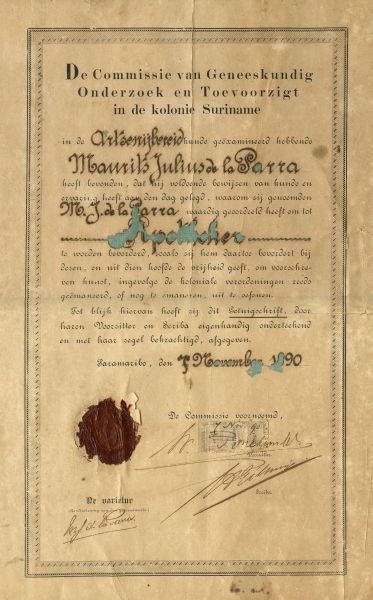 De Commissie van Geneeskundig
Onderzoek en Toevoorzigt
in de kolonie Suriname
in de Artsenijbereidkunde geëxamineerd hebbende
Maurits Julius de la Parra
heeft bevonden, dat hij voldoende bewijzen van kunde en
ervaring heeft aan den dag gelegd, waarom zij genoemden
M. J. de la Parra waardig geoordeeld heeft om tot
Apotheker
te worden bevorderd, zoals zij hem daartoe bevordert bij
dezen, en uit dien hoofde de vrijheid geeft, om voorschre-
ven kunst, ingevolge de koloniale verordeningen reeds
geëmaneerd, of nog te emaneren, uit te oefenen.
Tot blijk hiervan heeft zij dit Getuigschrift, door
haren Voorzitter en Scriba eigenhandig onderteekend
en met haar zegel bekrachtigd, afgegeven.
Paramaribo, den 7 November 1890
De Commissie voornoemd,
7 Nov 90
Voorzitter
Scriba.
Ne varietur